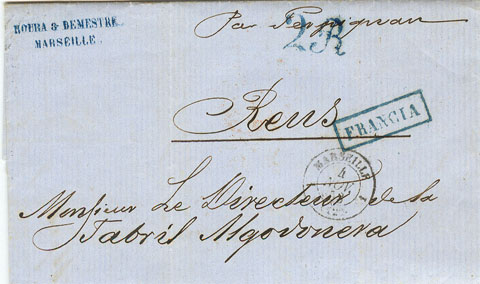 ROURA & DEMESTRE.
MARSEILLE.
Par Perpignan
2R
Reus
FRANCIA
MARSEILLE
4
Monsieur Le Directeur de la
Fabril Algodonera